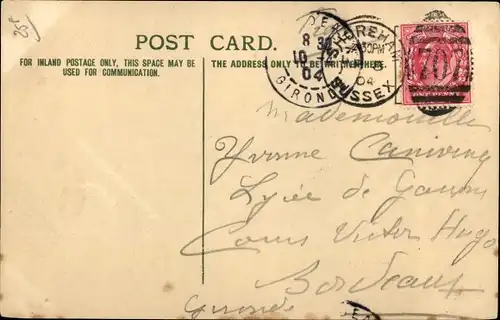 25c
POST CARD.
FOR INLAND POSTAGE ONLY, THIS SPACE MAY BE
USED FOR COMMUNICATION.
THE ADDRESS ONLY TO BE WRITTEN HERE.
8 30
10 12
04
GIRONDE
SHOREHAM
30PM
04
SUSSEX
Mademoiselle
Yvonne
Lycée de
Cours Victor Hugo
Bordeaux
Gironde